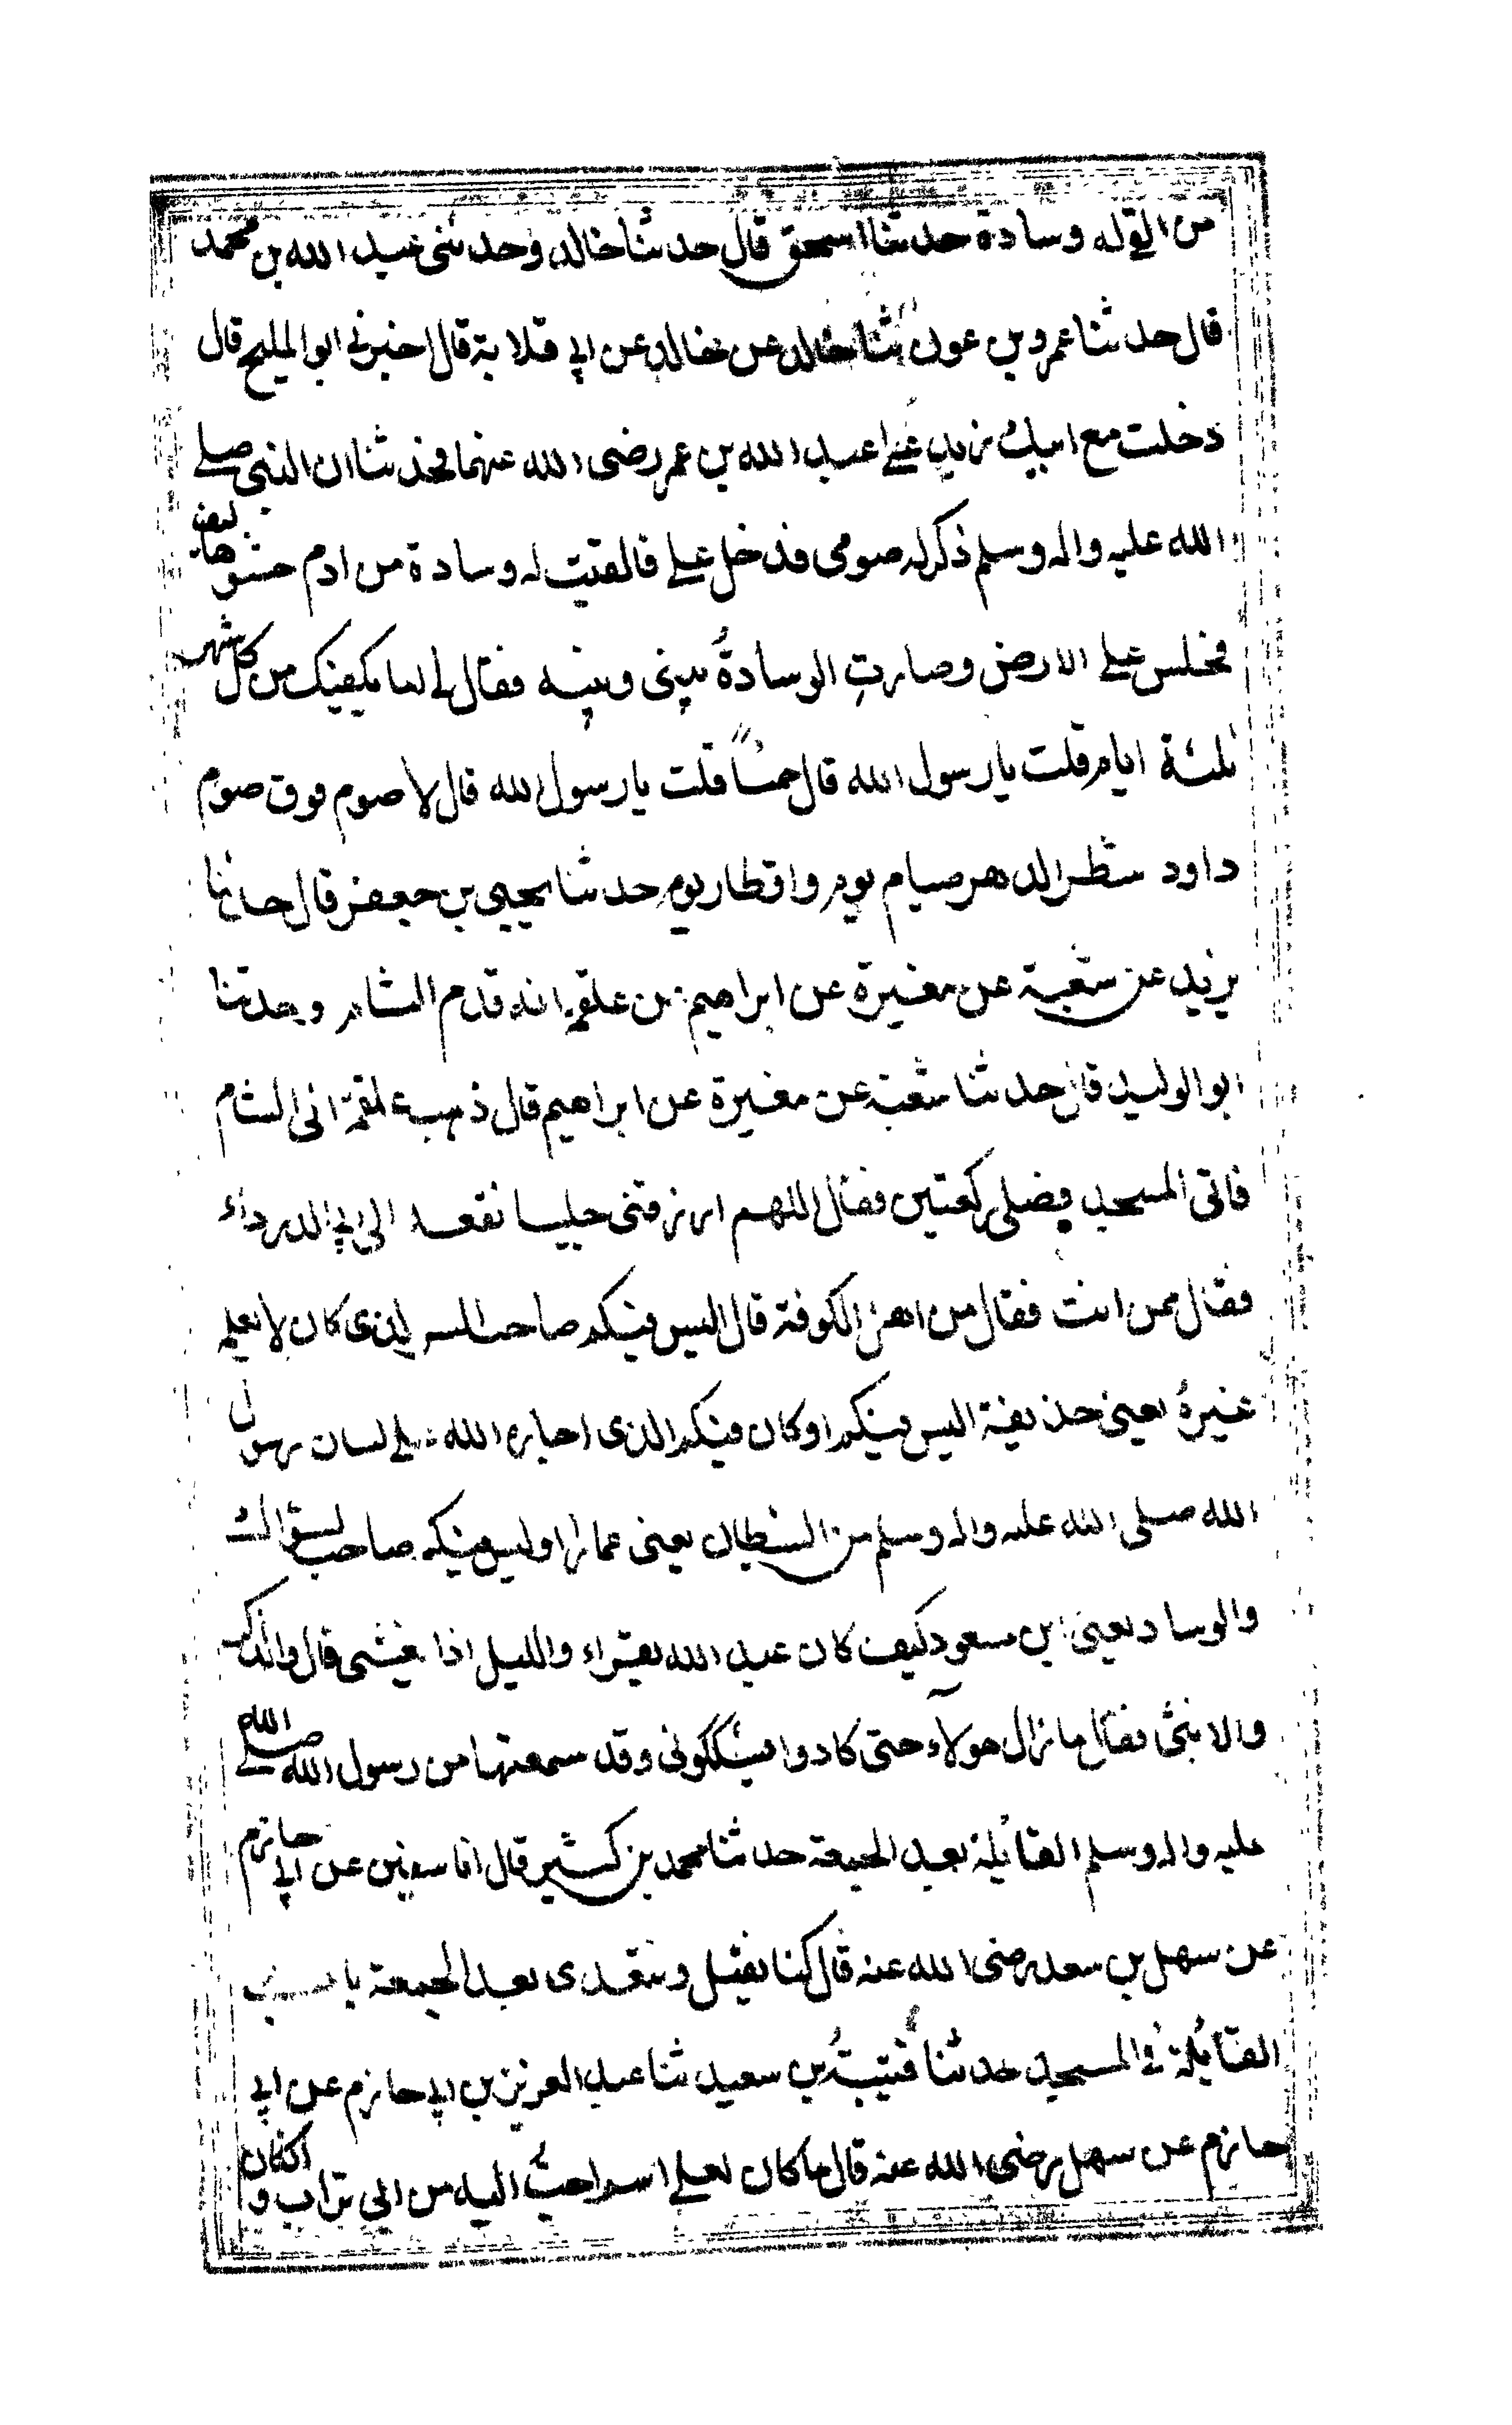 من القي له وسادة حدثنا اسحق قال حدثنا خالد وحدثني عبد الله بن محمد
قال حدثنا عمرو بن عون ثنا خالد عن خالد عن ابي قلابة قال اخبرني ابو المليح قال
دخلت مع ابيك زيد على عبد الله بن عمر رضى الله عنهما فحدثنا ان النبي صلى
الله عليه واله وسلم ذكر له صومى فدخل على فالقيت له وسادة من ادم حشوها ليف
فجلس على الارض وصارت الوسادة بينى وبينه فقال لى اما يكفيك من كل شهر
ثلثة ايام قلت يا رسول الله قال خمسا قلت يا رسول الله قال لا صوم فوق صوم
داود شطر الدهر صيام يوم وافطار يوم حدثنا يحيى بن جعفر قال حدثنا
يزيد عن شعبة عن مغيرة عن ابراهيم عن علقمة انه قدم الشام وحدثنا
ابو الوليد قال حدثنا شعبة عن مغيرة عن ابراهيم قال ذهب علقمة الى الشام
فاتى المسجد فصلى ركعتين فقال اللهم ارزقنى جليسا فقعد الى ابي الدرداء
فقال ممن انت فقال من اهل الكوفة قال اليس فيكم صاحب السر الذى كان لا يعلمه
غيره يعنى حذيفة اليس فيكم او كان فيكم الذى اجاره الله على لسان رسول
الله صلى الله عليه واله وسلم من الشيطان يعنى عمارا اوليس فيكم صاحب السواك
والوساد يعنى ابن مسعود كيف كان عبد الله يقراء والليل اذا يغشى قال والذكر
والانثى فقال ما زال هولاء حتى كادوا يشككونى وقد سمعتها من رسول الله صلى الله
عليه واله وسلم القائلة بعد الجمعة حدثنا محمد بن كثير قال انا سفين عن ابي حازم
عن سهل بن سعد رضى الله عنه قال كنا نقيل ونتغدى بعد الجمعة باب
القائلة في المسجد حدثنا قتيبة بن سعيد ثنا عبد العزيز بن ابي حازم عن ابي
حازم عن سهل رضى الله عنه قال ما كان لعلى اسم احب اليه من ابى تراب و اكان